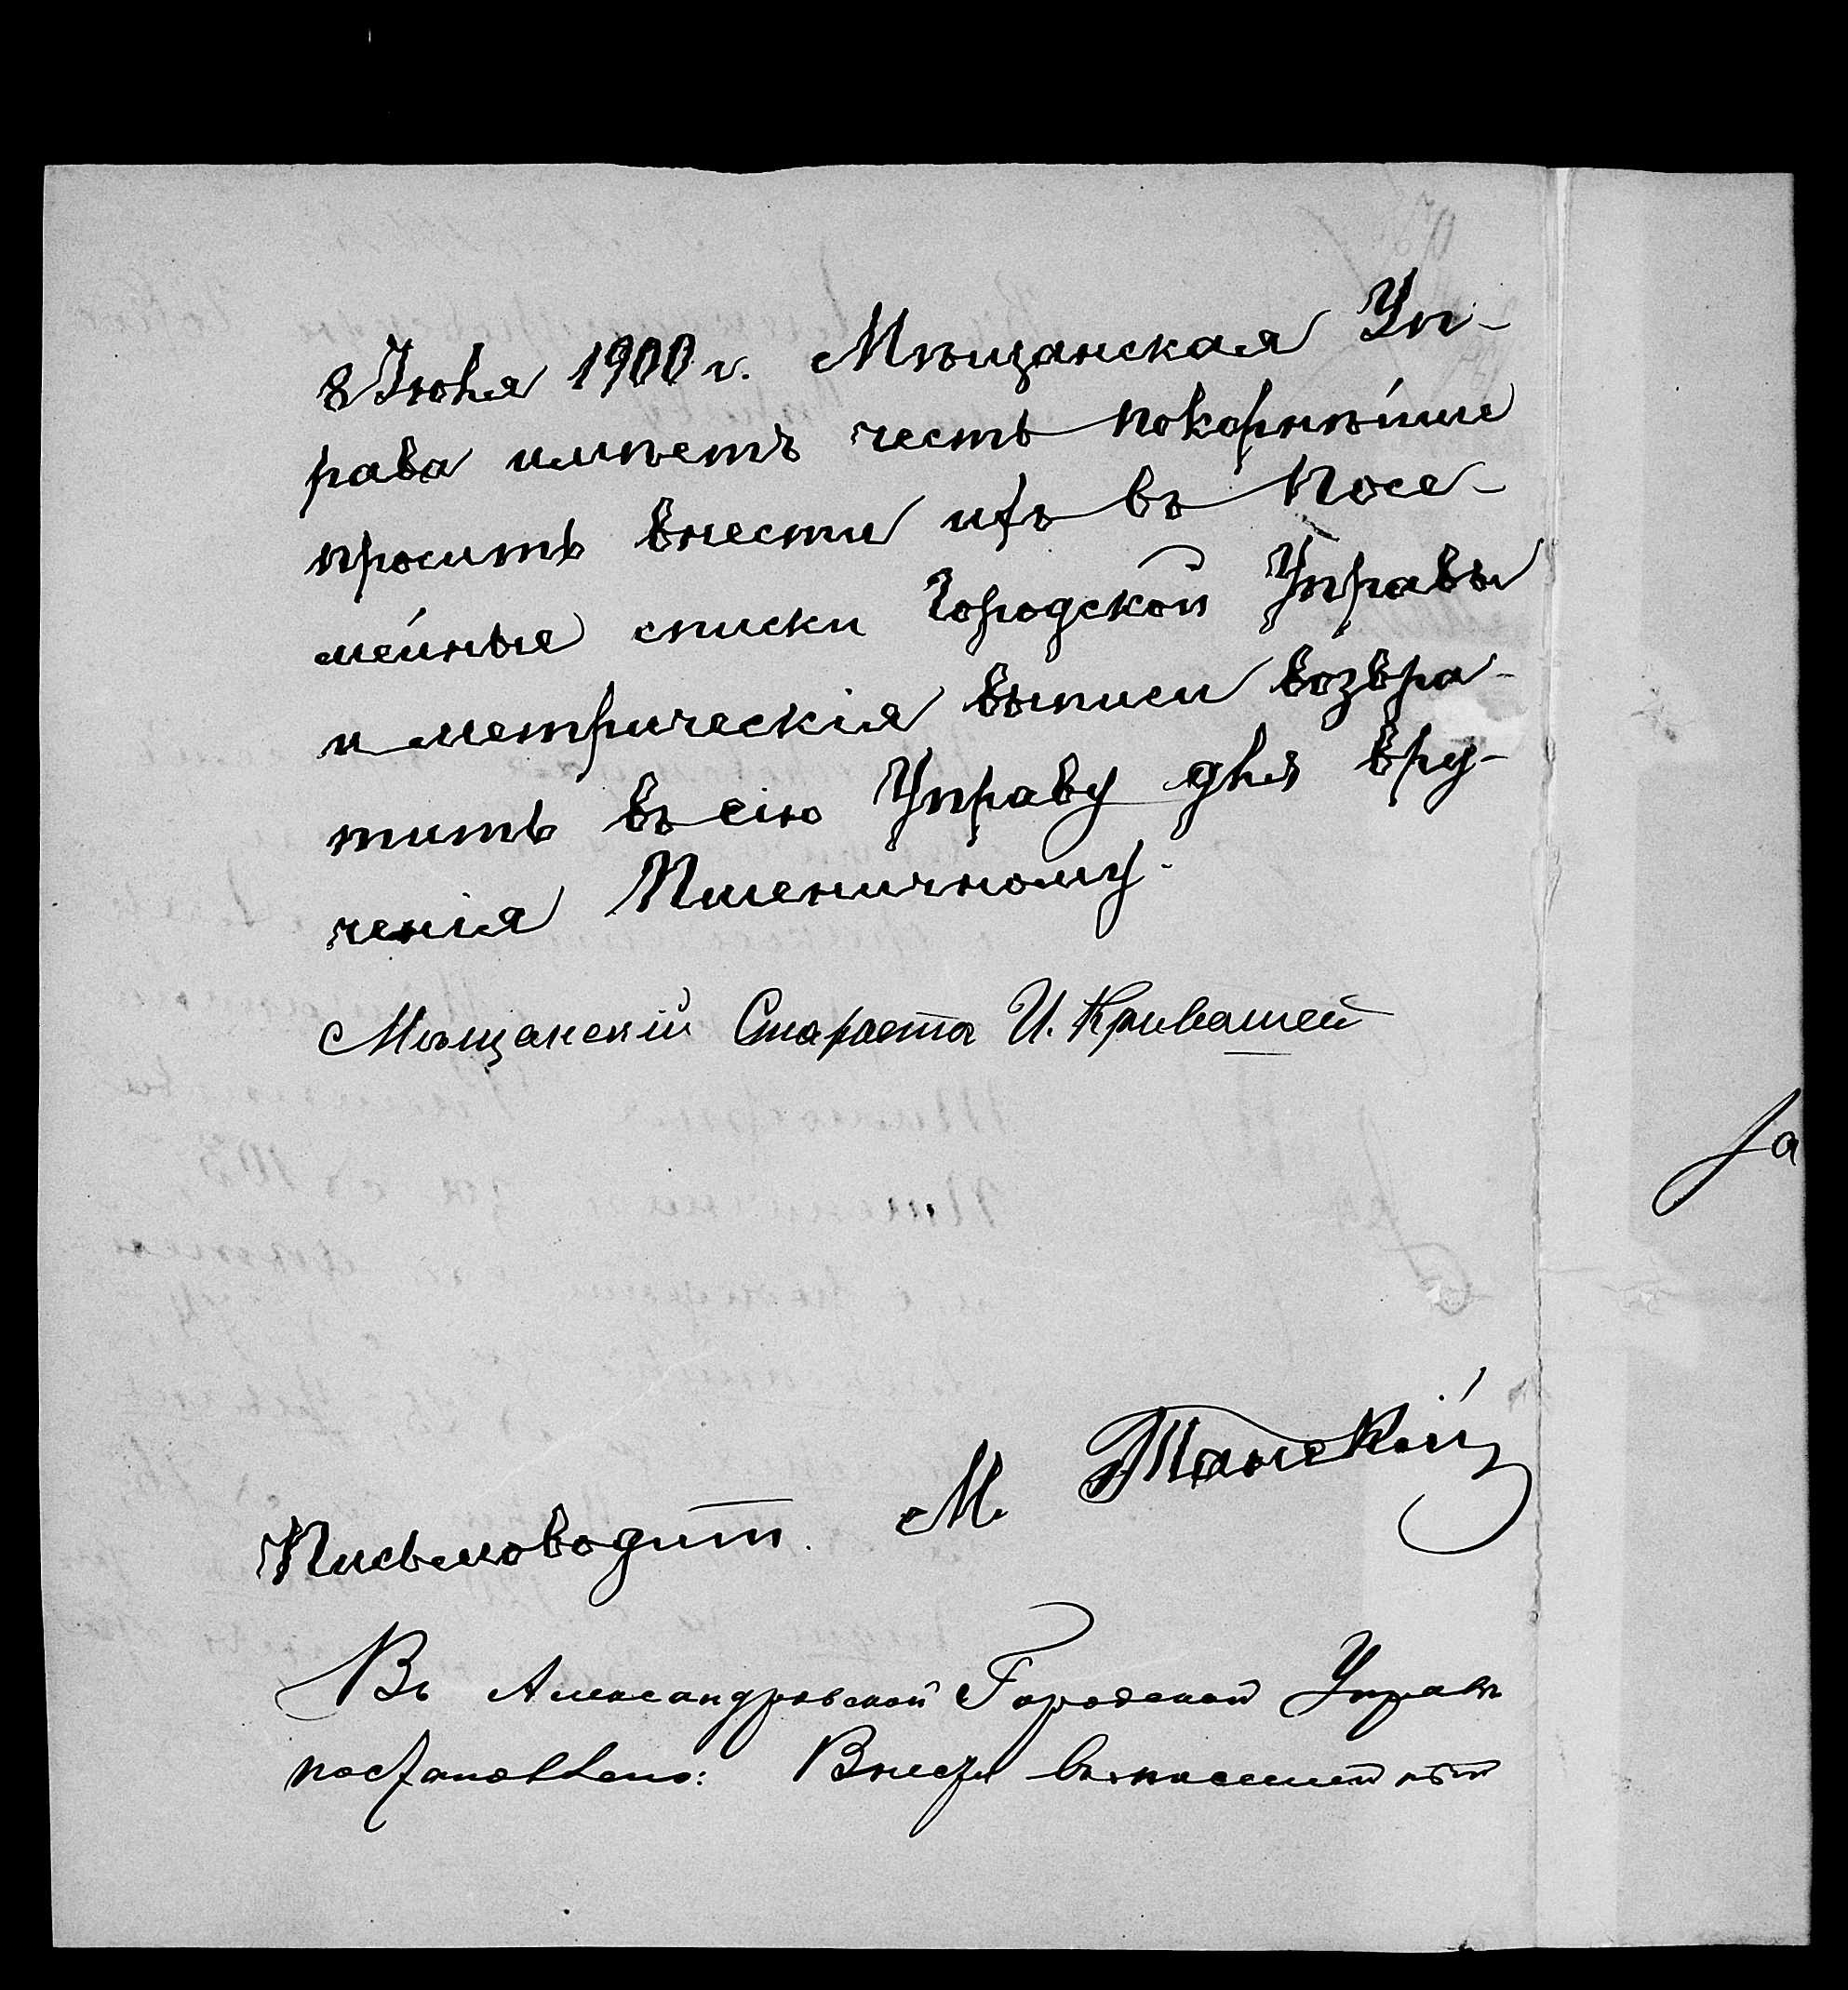 8 Іюля 1900 г. Мѣщанская Уп-
рава имѣетъ честь покорнѣйше
просить внести ихъ въ Посе-
мейные списки Городской Управы
и метрическія выписи возвра-
тить въ сію Управу для вру-
ченія Пшеничному.
Мѣщанскій Староста И. Кривошей
Письмоводит. М. Танскій
Въ Александровской Городской Управѣ
постановлено: Внести въ посемейный